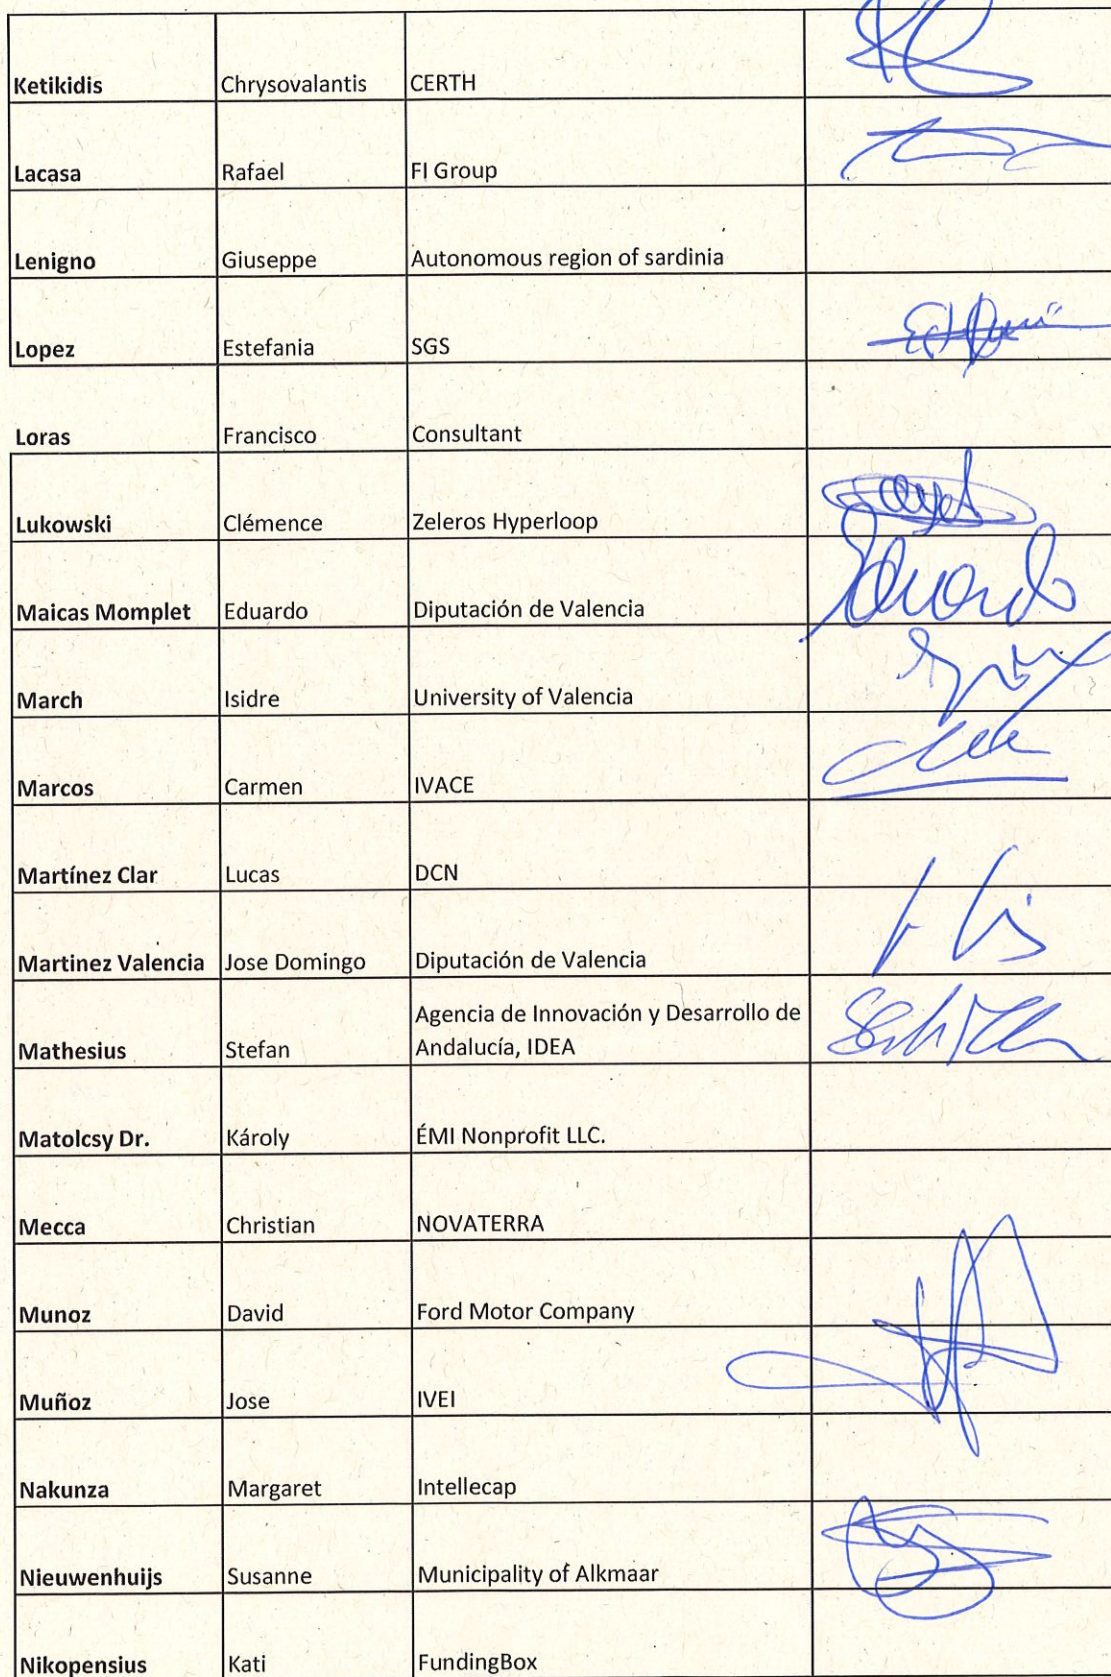 Ketikidis Chrysovalantis CERTH
Lacasa Rafael FI Group
Lenigno Giuseppe Autonomous region of sardinia
Lopez Estefania SGS
Loras Francisco Consultant
Lukowski Clémence Zeleros Hyperloop
Maicas Momplet Eduardo Diputación de Valencia Eduardo
March Isidre University of Valencia
Marcos Carmen IVACE
Martínez Clar Lucas DCN
Martinez Valencia Jose Domingo Diputación de Valencia
Agencia de Innovación y Desarrollo de
Mathesius Stefan Andalucía, IDEA
Matolcsy Dr. Károly ÉMI Nonprofit LLC.
Mecca Christian NOVATERRA
Munoz David Ford Motor Company
Muñoz Jose IVEI
Nakunza Margaret Intellecap
Nieuwenhuijs Susanne Municipality of Alkmaar
Nikopensius Kati FundingBox